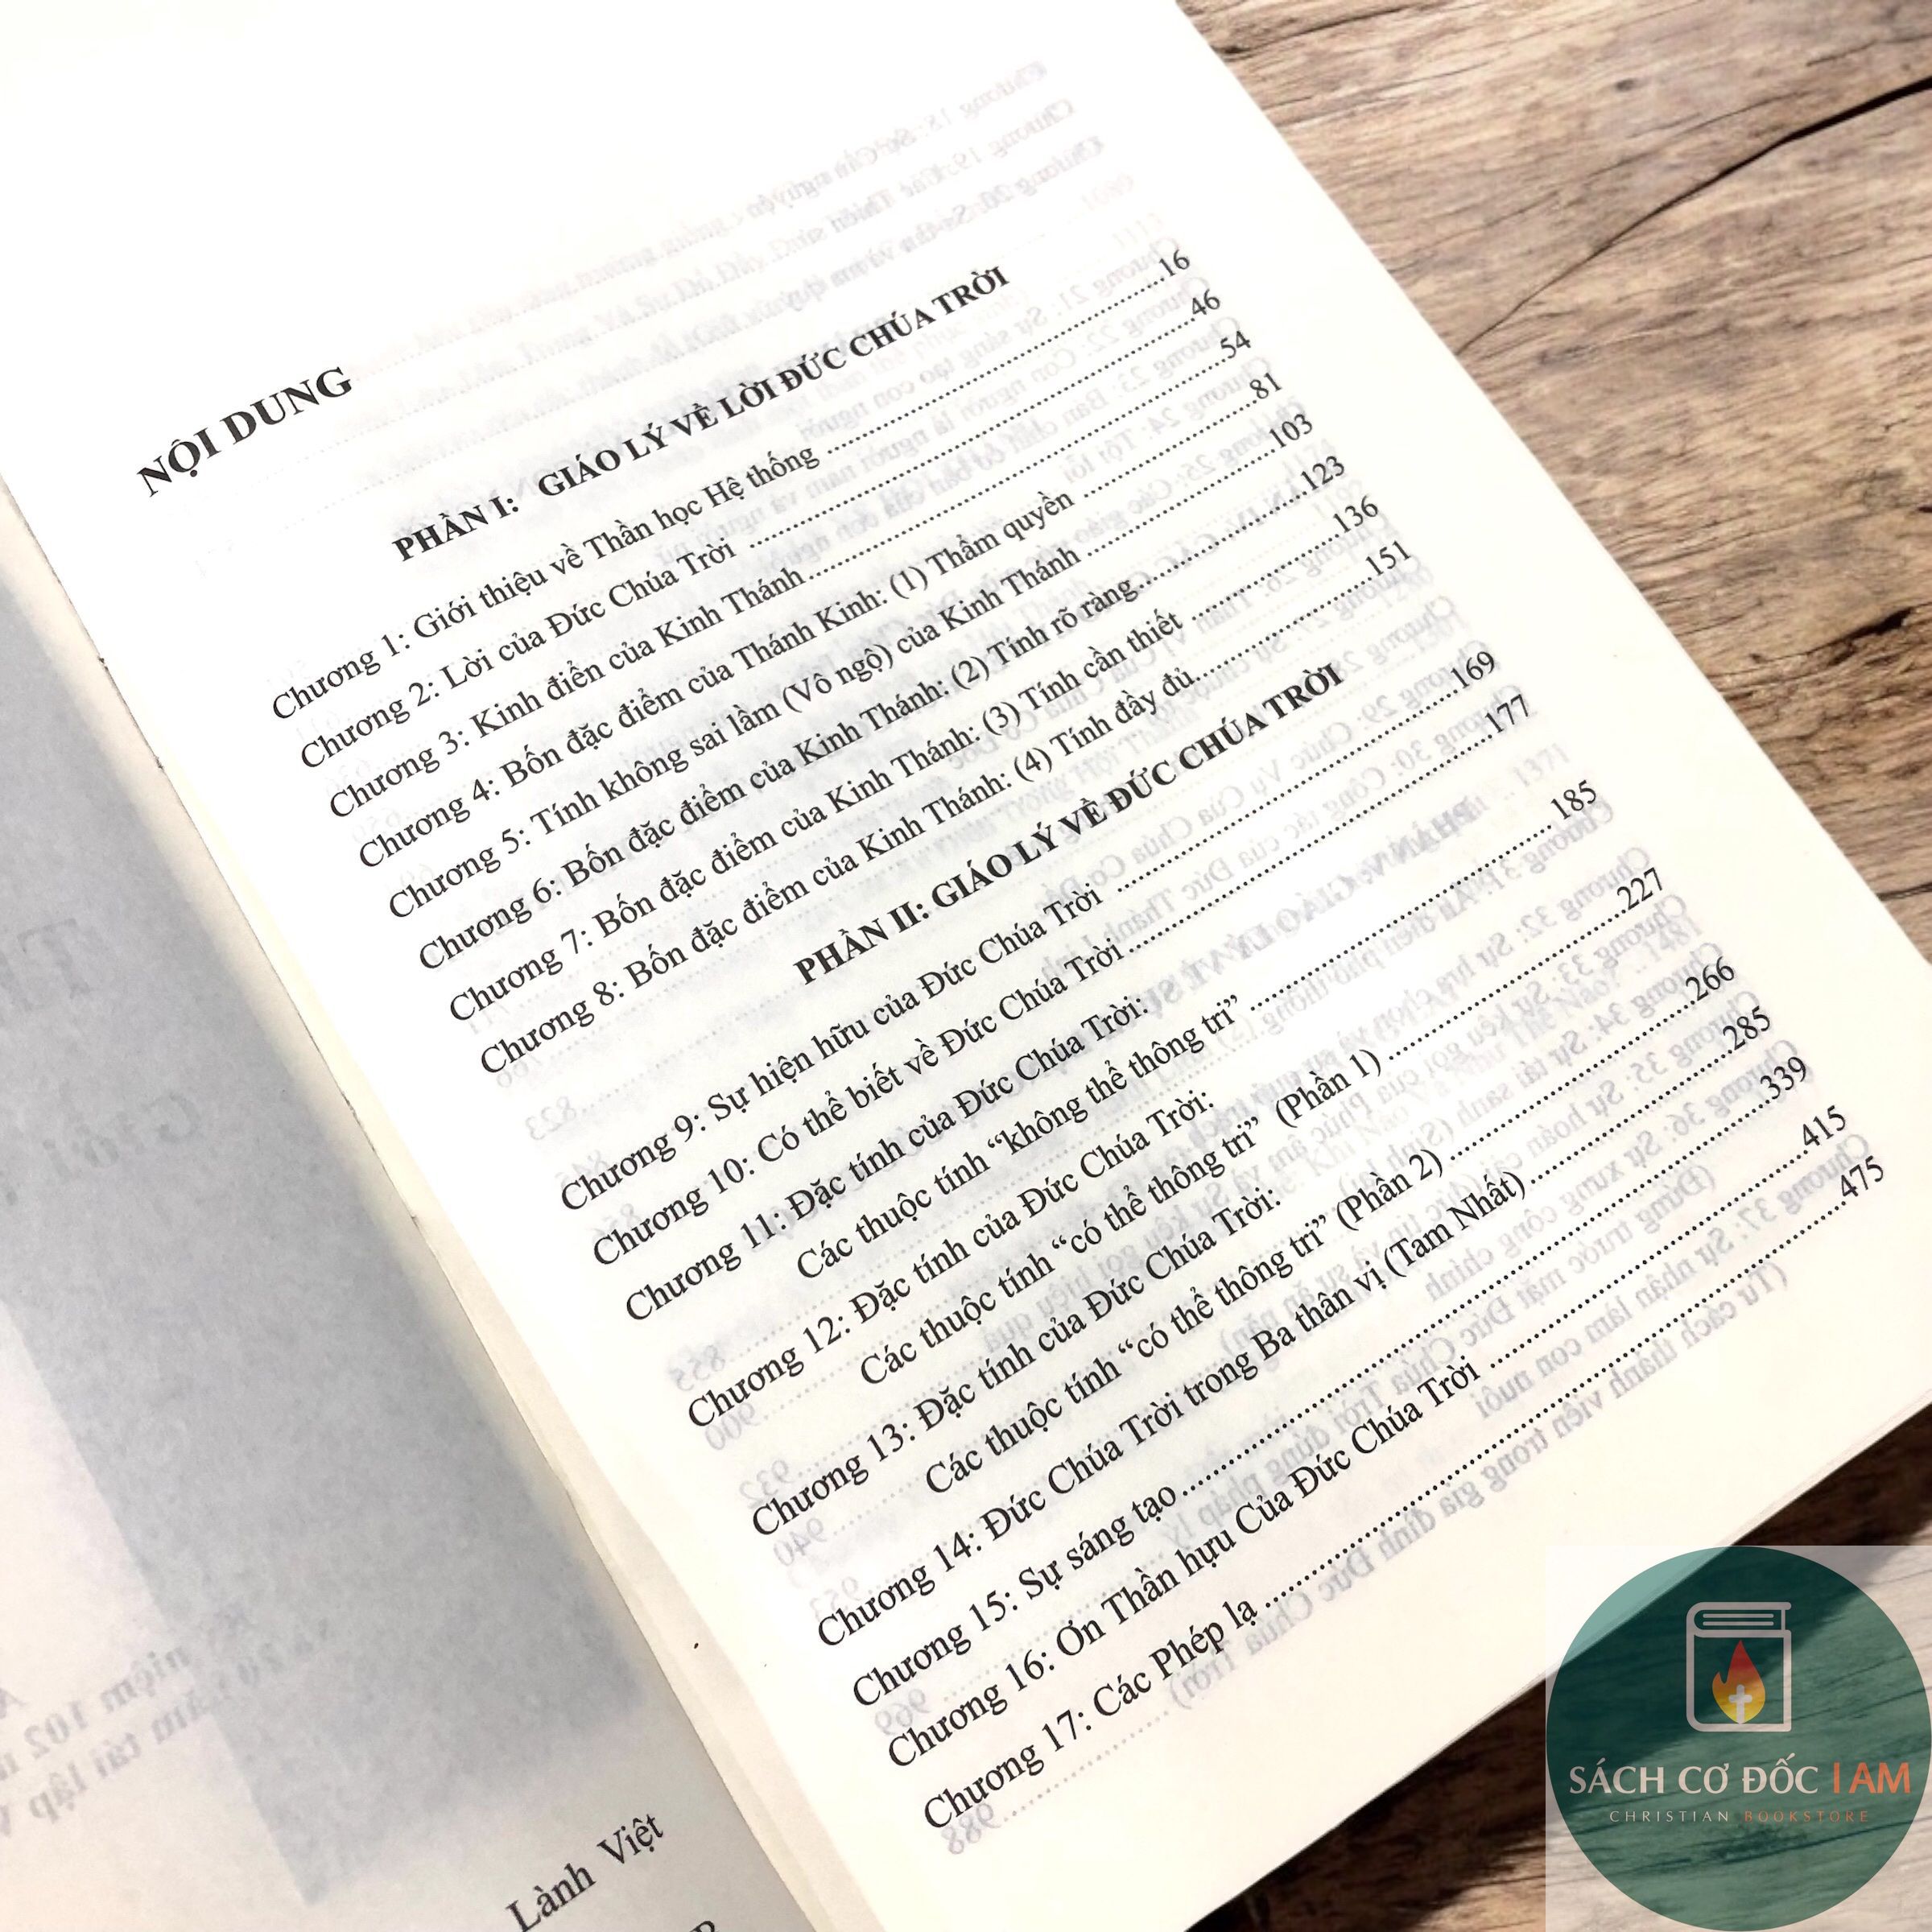 NỘI DUNG
PHẦN I: GIÁO LÝ VỀ LỜI ĐỨC CHÚA TRỜI
Chương 1: Giới thiệu về Thần học Hệ thống ....................16
Chương 2: Lời của Đức Chúa Trời ....................46
Chương 3: Kinh điển của Kinh Thánh....................54
Chương 4: Bốn đặc điểm của Thánh Kinh: (1) Thẩm quyền ....................81
Chương 5: Tính không sai lầm (Vô ngộ) của Kinh Thánh ....................103
Chương 6: Bốn đặc điểm của Kinh Thánh: (2) Tính rõ ràng....................123
Chương 7: Bốn đặc điểm của Kinh Thánh: (3) Tính cần thiết ....................136
Chương 8: Bốn đặc điểm của Kinh Thánh: (4) Tính đầy đủ....................151
PHẦN II: GIÁO LÝ VỀ ĐỨC CHÚA TRỜI
Chương 9: Sự hiện hữu của Đức Chúa Trời ....................169
Chương 10: Có thể biết về Đức Chúa Trời ....................177
Chương 11: Đặc tính của Đức Chúa Trời:
Các thuộc tính “không thể thông tri” .................... 185
Chương 12: Đặc tính của Đức Chúa Trời:
Các thuộc tính “có thể thông tri” (Phần 1) ....................227
Chương 13: Đặc tính của Đức Chúa Trời:
Các thuộc tính “có thể thông tri” (Phần 2) ....................266
Chương 14: Đức Chúa Trời trong Ba thân vị (Tam Nhất) ....................285
Chương 15: Sự sáng tạo ....................339
Chương 16: Ơn Thần hựu Của Đức Chúa Trời ....................415
Chương 17: Các Phép lạ ....................475
Lành Việt
SÁCH CƠ ĐỐC I AM
CHRISTIAN BOOKSTORE